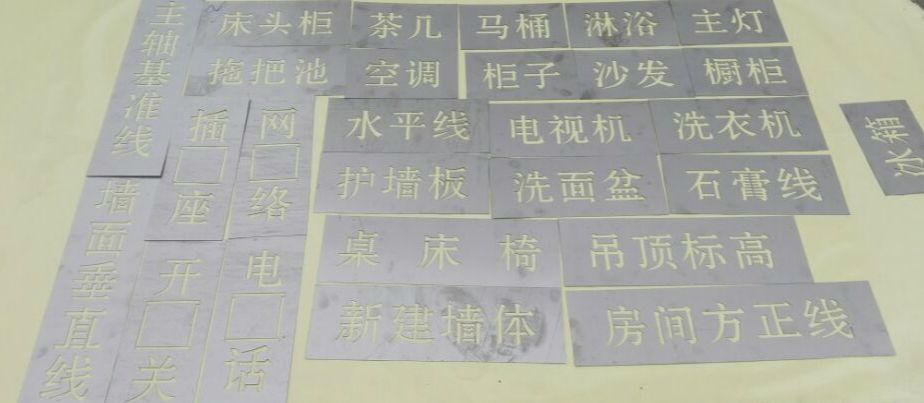 主轴基准线
床头柜
茶几
马桶
淋浴
主灯
拖把池
空调
柜子
沙发
橱柜
插座
网络
水平线
电视机
洗衣机
冰箱
护墙板
洗面盆
石膏线
墙面垂直线
开关
电话
桌床椅
吊顶标高
新建墙体
房间方正线